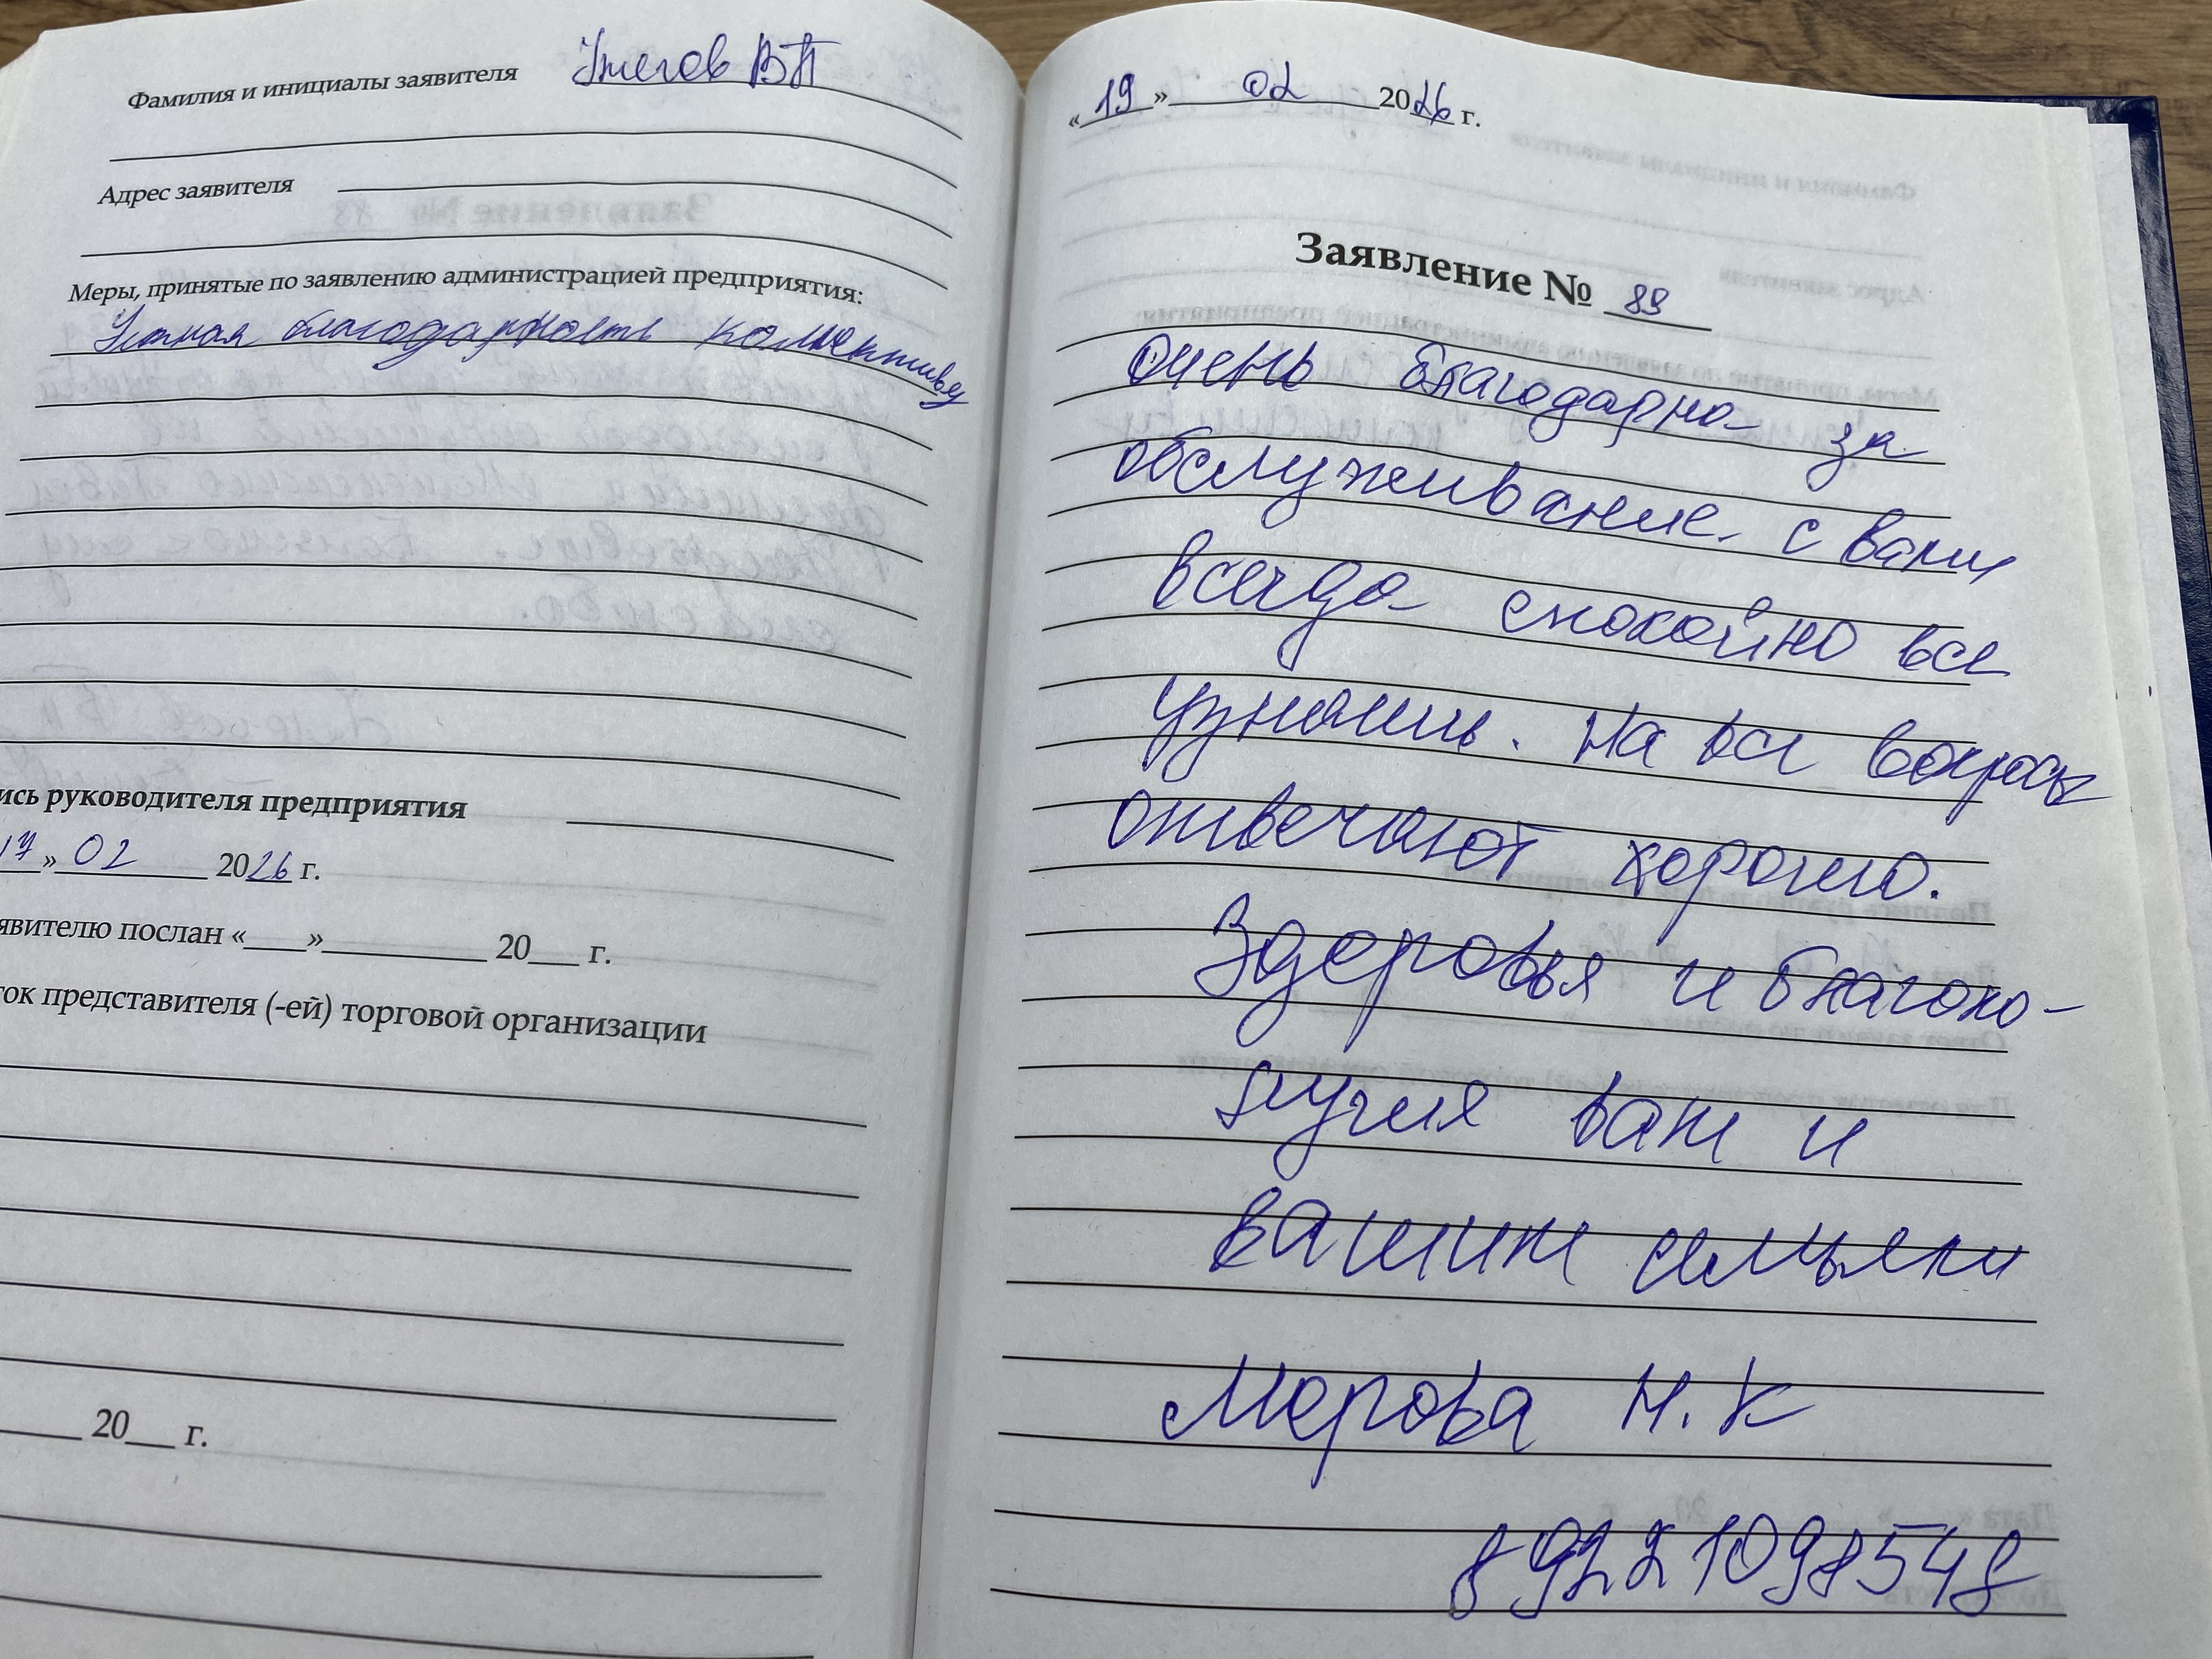 Фамилия и инициалы заявителя Ужегов ВП
Адрес заявителя
Меры, принятые по заявлению администрацией предприятия:
Устная благодарность коллективу
ись руководителя предприятия
17 » 02 2026 г.
явителю послан «___»_________ 20___ г.
ток представителя (-ей) торговой организации
20___ г.
« 19 » 02 2026 г.
Заявление № 89
Очень благодарна за
обслуживание. с вами
всегда спокойно все
узнаешь. На все вопросы
отвечают хорошо.
Здоровья и благопо-
лучия вам и
вашим семьям
Мерова Н. К
89221098548